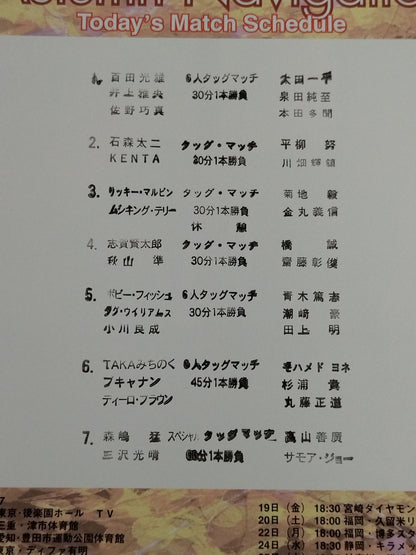 Today's Match Schedule
1. 百田光雄 6人タッグマッチ 太田一平
井上雅央 30分1本勝負 泉田純至
佐野巧真 本田多聞
2. 石森太二 タッグ・マッチ 平柳 努
KENTA 30分1本勝負 川畑輝鎮
3. リッキー・マルビン タッグ・マッチ 菊地 毅
ムシキング・テリー 30分1本勝負 金丸義信
休 憩
4. 志賀賢太郎 タッグ・マッチ 橋 誠
秋山 準 30分1本勝負 齋藤彰俊
5. ボビー・フィッシュ 6人タッグマッチ 青木篤志
ダグ・ウイリアムス 30分1本勝負 潮﨑 豪
小川良成 田上 明
6. TAKAみちのく 6人タッグマッチ モハメド ヨネ
ブキャナン 45分1本勝負 杉浦 貴
ディーロ・ブラウン 丸藤正道
7. 森嶋 猛 スペシャル タッグマッチ 高山善廣
三沢光晴 60分1本勝負 サモア・ジョー
7
東京・後楽園ホール TV
三重・津市体育館
愛知・豊田市運動公園体育館
東京・ディファ有明
19日(金) 18:30 宮崎ダイヤモン
20日(土) 18:00 福岡・久留米リ
22日(月) 18:00 福岡・博多スタ
24日(水) 18:30 静岡・キラメッ